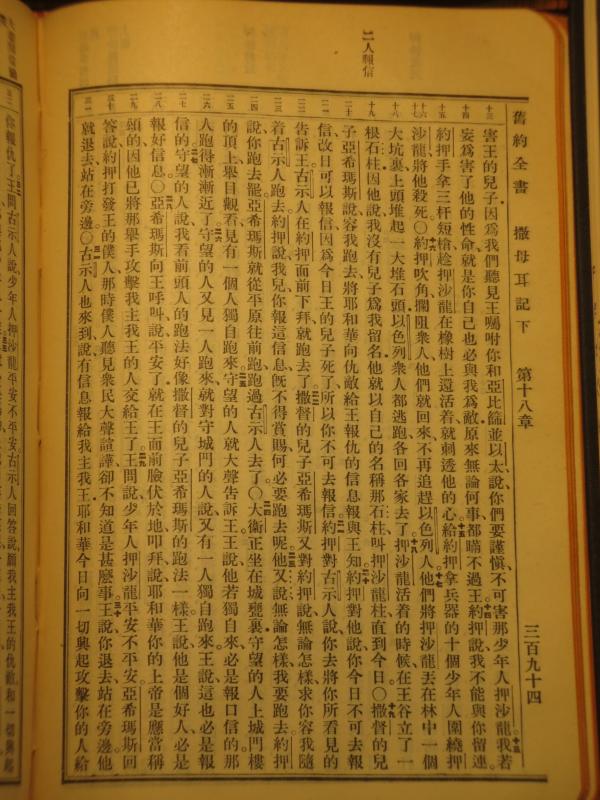 舊約全書　撒母耳記下　第十八章　三百九十四
二人報信
十三 害王的兒子因爲我們聽見王囑咐你和亞比篩並以太說你們要謹愼不可害那少年人押沙龍我若
十四 妄爲害了他的性命就是你自己也必與我爲敵原來無論何事都瞞不過王約押說我不能與你留連
十五 約押手拿三杆短槍趁押沙龍在橡樹上還活着就刺透他的心給約押拿兵器的十個少年人圍繞押
十六 十七 沙龍將他殺死〇約押吹角攔阻衆人他們就回來不再追趕以色列人他們將押沙龍丟在林中一個
十八 大坑裏上頭堆起一大堆石頭以色列衆人都逃跑各回各家去了押沙龍活着的時候在王谷立了一
十九 根石柱因他說我沒有兒子爲我留名他就以自己的名稱那石柱叫押沙龍柱直到今日〇撒督的兒
二十 子亞希瑪斯說容我跑去將耶和華向仇敵給王報仇的信息報與王知約押對他說你今日不可去報
二一 信改日可以報信因爲今日王的兒子死了所以你不可去報信約押對古示人說你去將你所看見的
二二 告訴王古示人在約押面前下拜就跑去了撒督的兒子亞希瑪斯又對約押說無論怎樣求你容我隨
二三 着古示人跑去約押說我兒你報這信息旣不得賞賜何必要跑去呢他又說無論怎樣我要跑去約押
二四 說你跑去罷亞希瑪斯就從平原往前跑跑過古示人去了〇大衞正坐在城甕裏守望的人上城門樓
二五 的頂上舉目觀看見有一個人獨自跑來守望的人就大聲告訴王王說他若獨自來必是報口信的那
二六 人跑得漸漸近了守望的人又見一人跑來就對守城門的人說又有一人獨自跑來王說這也必是報
二七 信的守望的人說我看前頭人的跑法好像撒督的兒子亞希瑪斯的跑法一樣王說他是個好人必是
二八 報好信息〇亞希瑪斯向王呼叫說平安了就在王面前臉伏於地叩拜說耶和華你的上帝是應當稱
二九 頌的因他已將那舉手攻擊我主我王的人交給王了王問說少年人押沙龍平安不平安亞希瑪斯回
三十 答說約押打發王的僕人那時僕人聽見衆民大聲諠譁卻不知道是甚麼事王說你退去站在旁邊他
三一 就退去站在旁邊〇古示人也來到說有信息報給我主我王耶和華今日向一切興起攻擊你的人給
三二 你報仇了王問古示人說少年人押沙龍平安不平安古示人回答說願我主我王的仇敵和一切興起